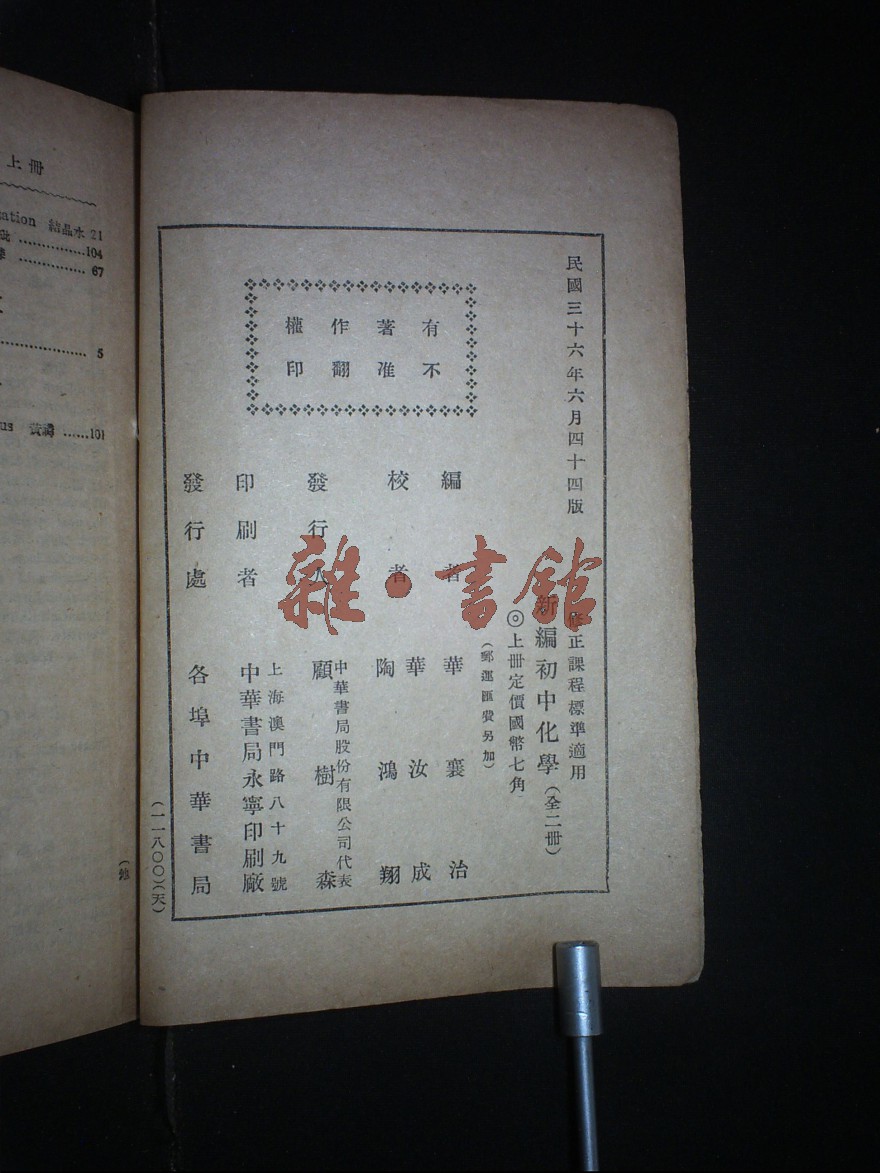 民國三十六年六月四十四版
修正課程標準適用
新編初中化學（全二冊）
◎上冊定價國幣七角
（郵運匯費另加）
有著作權
不准翻印
編者 華襄治
校者 華汝成
陶鴻翔
發行人 中華書局股份有限公司代表
顧樹森
印刷者 上海澳門路八十九號
中華書局永寧印刷廠
發行處 各埠中華書局
（一一八〇〇）（天）
雜·書館
上冊
ation 結晶水 21
104
67
5
us 黃磷 101